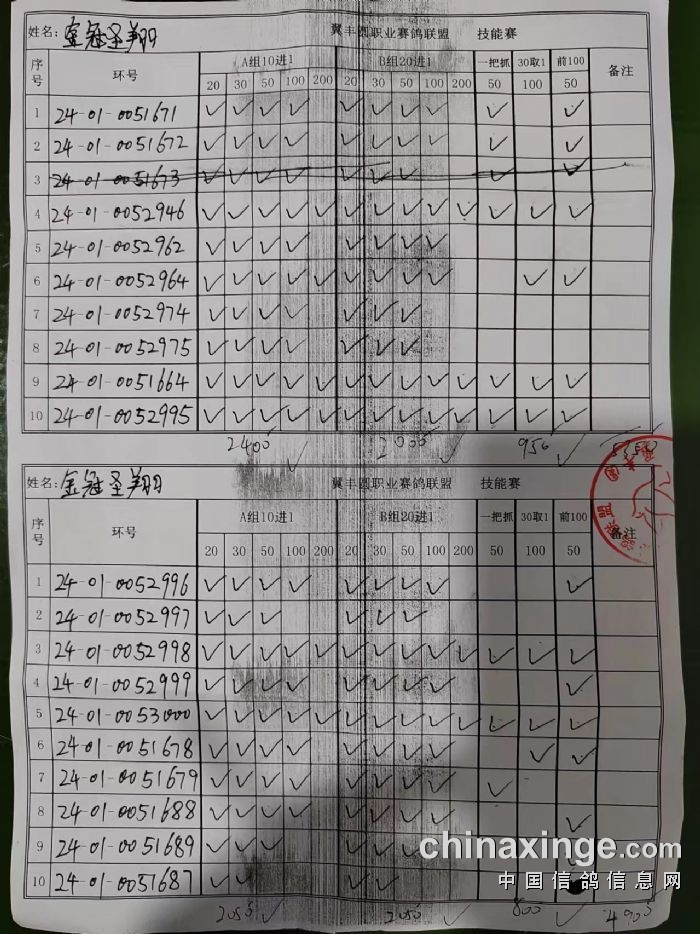 姓名: 金冠圣翔 翼丰圆职业赛鸽联盟 技能赛
序号 环号 A组10进1 B组20进1 一把抓 30取1 前100 备注
20 30 50 100 200 20 30 50 100 200 50 100 50
1 24-01-0051671 ✓ ✓ ✓ ✓ ✓ ✓ ✓ ✓ ✓ ✓
2 24-01-0051672 ✓ ✓ ✓ ✓ ✓ ✓ ✓ ✓ ✓ ✓
3 24-01-0051673 ✓ ✓ ✓ ✓ ✓ ✓ ✓ ✓ ✓
4 24-01-0052946 ✓ ✓ ✓ ✓ ✓ ✓ ✓ ✓ ✓ ✓ ✓ ✓ ✓
5 24-01-0052962 ✓ ✓ ✓ ✓ ✓ ✓ ✓ ✓
6 24-01-0052964 ✓ ✓ ✓ ✓ ✓ ✓ ✓ ✓ ✓ ✓ ✓
7 24-01-0052974 ✓ ✓ ✓ ✓ ✓ ✓ ✓
8 24-01-0052975 ✓ ✓ ✓ ✓ ✓ ✓ ✓
9 24-01-0051664 ✓ ✓ ✓ ✓ ✓ ✓ ✓ ✓ ✓ ✓ ✓ ✓ ✓
10 24-01-0052995 ✓ ✓ ✓ ✓ ✓ ✓ ✓ ✓ ✓ ✓ ✓ ✓ ✓
2400 ✓ ✓ 950 ✓
姓名: 金冠圣翔 翼丰圆职业赛鸽联盟 技能赛
序号 环号 A组10进1 B组20进1 一把抓 30取1 前100 备注
20 30 50 100 200 20 30 50 100 200 50 100 50
1 24-01-0052996 ✓ ✓ ✓ ✓ ✓ ✓ ✓ ✓ ✓
2 24-01-0052997 ✓ ✓ ✓ ✓ ✓ ✓
3 24-01-0052998 ✓ ✓ ✓ ✓ ✓ ✓ ✓ ✓ ✓ ✓ ✓ ✓ ✓
4 24-01-0052999 ✓ ✓ ✓ ✓ ✓ ✓ ✓ ✓ ✓
5 24-01-0053000 ✓ ✓ ✓ ✓ ✓ ✓ ✓ ✓ ✓ ✓ ✓ ✓ ✓
6 24-01-0051678 ✓ ✓ ✓ ✓ ✓ ✓ ✓ ✓ ✓ ✓
7 24-01-0051679 ✓ ✓ ✓ ✓ ✓ ✓ ✓ ✓ ✓
8 24-01-0051688 ✓ ✓ ✓ ✓ ✓ ✓ ✓ ✓ ✓
9 24-01-0051689 ✓ ✓ ✓ ✓ ✓ ✓
10 24-01-0051687 ✓ ✓ ✓ ✓
2050 ✓ 2050 ✓ 800 ✓ 4900
chinaxinge.com
中国信鸽信息网